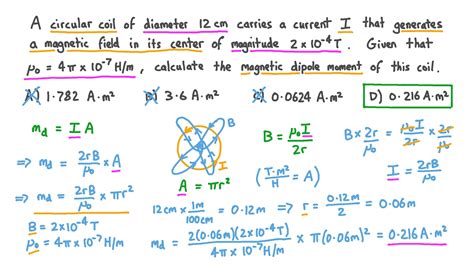 A circular coil of diameter 12 cm carries a current I that generates
a magnetic field in its center of magnitude 2×10⁻⁴ T. Given that
μ₀ = 4π × 10⁻⁷ H/m, calculate the magnetic dipole moment of this coil.
A) 1.782 A·m² B) 3.6 A·m² C) 0.0624 A·m² D) 0.216 A·m²
m_d = I A
⇒ m_d = 2rB/μ₀ × A
⇒ m_d = 2rB/μ₀ × πr²
B = 2×10⁻⁴ T
μ₀ = 4π × 10⁻⁷ H/m
B
I
A = πr²
B = μ₀I/2r
B × 2r/μ₀ = μ₀I/2r × 2r/μ₀
(T·m²/H = A)
I = 2rB/μ₀
12 cm × 1m/100cm = 0.12m ⇒ r = 0.12m/2 = 0.06m
m_d = 2(0.06m)(2×10⁻⁴T)/4π × 10⁻⁷ H/m × π(0.06m)² = 0.216 A·m²